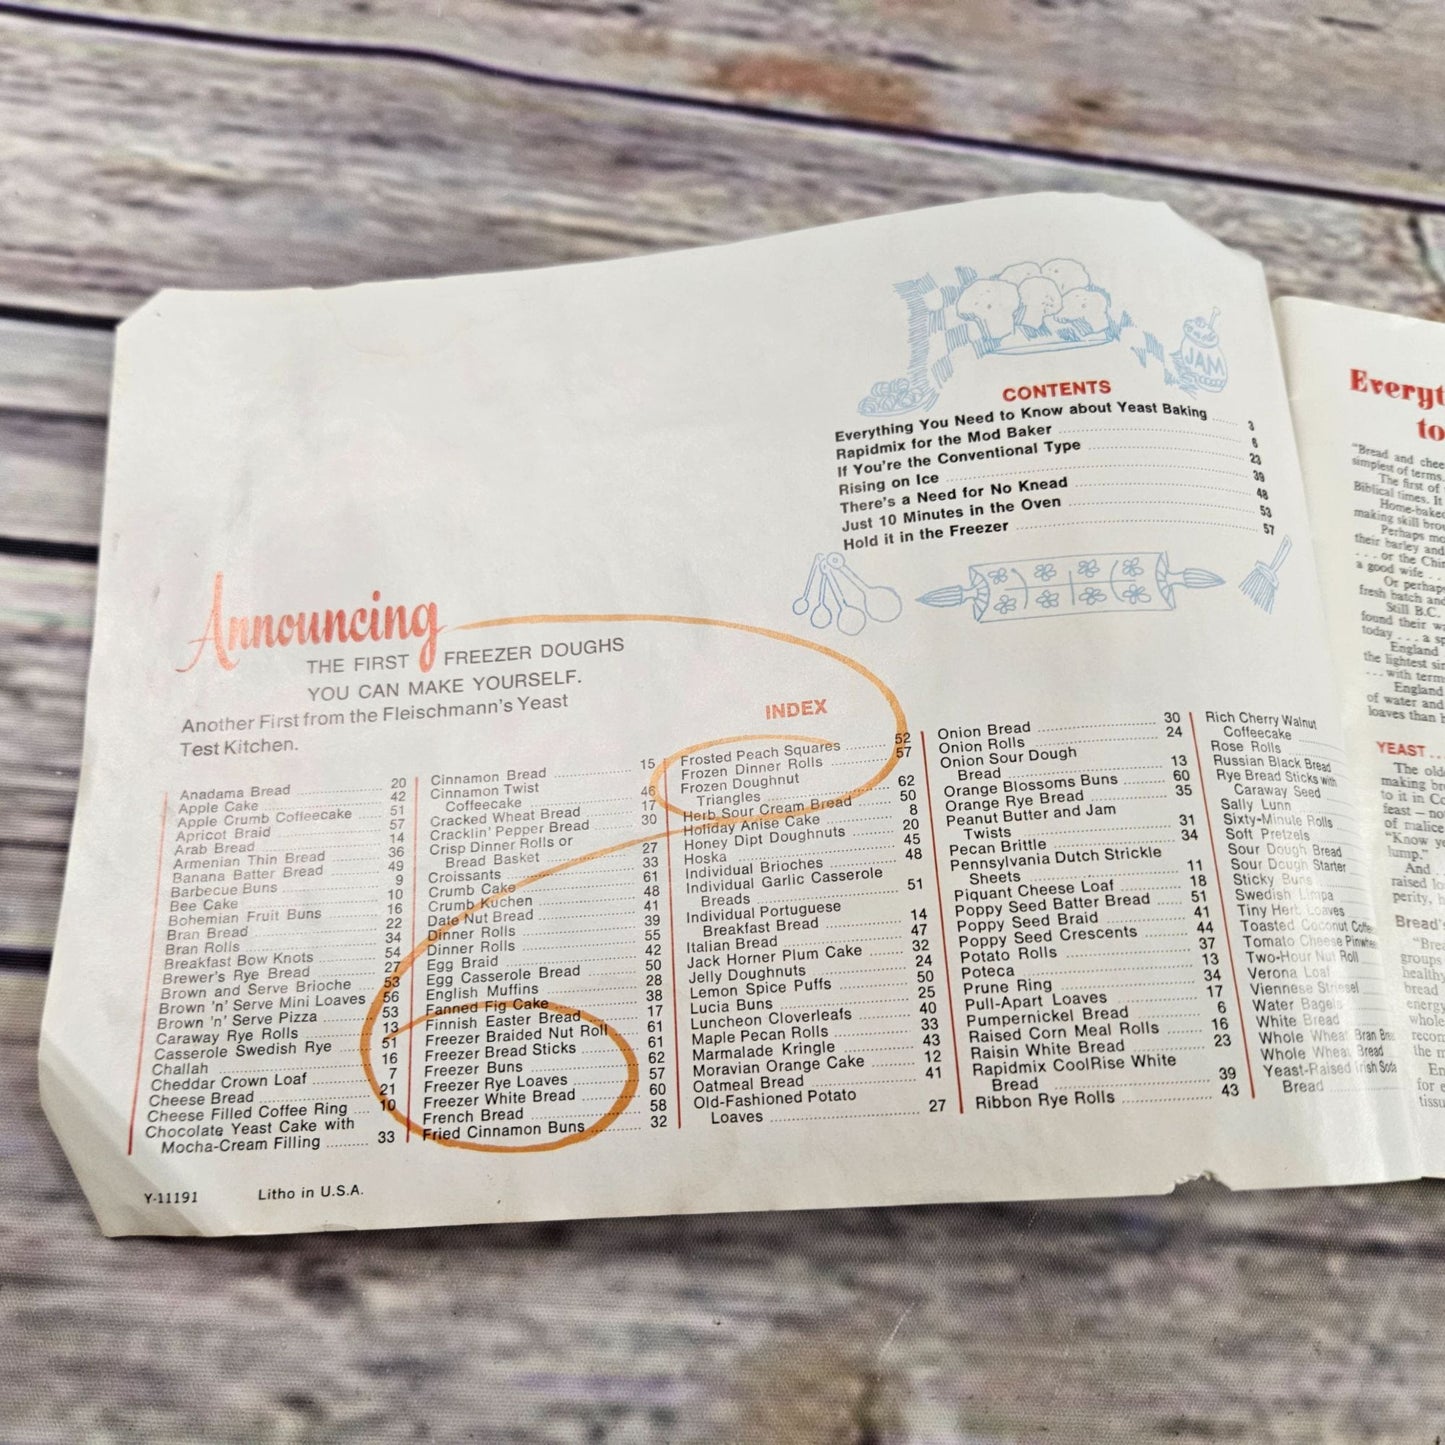 CONTENTS
Everything You Need to Know about Yeast Baking ..... 3
Rapidmix for the Mod Baker ..... 6
If You're the Conventional Type ..... 23
Rising on Ice ..... 39
There's a Need for No Knead ..... 48
Just 10 Minutes in the Oven ..... 53
Hold it in the Freezer ..... 57
JAM
Announcing
THE FIRST FREEZER DOUGHS
YOU CAN MAKE YOURSELF.
Another First from the Fleischmann's Yeast
Test Kitchen.
INDEX
Anadama Bread ..... 20
Apple Cake ..... 42
Apple Crumb Coffeecake ..... 51
Apricot Braid ..... 57
Arab Bread ..... 14
Armenian Thin Bread ..... 36
Banana Batter Bread ..... 49
Barbecue Buns ..... 9
Bee Cake ..... 10
Bohemian Fruit Buns ..... 16
Bran Bread ..... 22
Bran Rolls ..... 34
Breakfast Bow Knots ..... 54
Brewer's Rye Bread ..... 27
Brown and Serve Brioche ..... 53
Brown 'n' Serve Mini Loaves ..... 56
Brown 'n' Serve Pizza ..... 53
Caraway Rye Rolls ..... 13
Casserole Swedish Rye ..... 51
Challah ..... 16
Cheddar Crown Loaf ..... 7
Cheese Bread ..... 21
Cheese Filled Coffee Ring ..... 10
Chocolate Yeast Cake with
Mocha-Cream Filling ..... 33
Cinnamon Bread ..... 15
Cinnamon Twist
Coffeecake ..... 46
Cracked Wheat Bread ..... 17
Cracklin' Pepper Bread ..... 30
Crisp Dinner Rolls or
Bread Basket ..... 27
Croissants ..... 33
Crumb Cake ..... 61
Crumb Kuchen ..... 48
Date Nut Bread ..... 41
Dinner Rolls ..... 39
Dinner Rolls ..... 55
Egg Braid ..... 42
Egg Casserole Bread ..... 50
English Muffins ..... 28
Fanned Fig Cake ..... 38
Finnish Easter Bread ..... 17
Freezer Braided Nut Roll ..... 61
Freezer Bread Sticks ..... 61
Freezer Buns ..... 62
Freezer Rye Loaves ..... 57
Freezer White Bread ..... 60
French Bread ..... 58
Fried Cinnamon Buns ..... 32
Frosted Peach Squares ..... 52
Frozen Dinner Rolls ..... 57
Frozen Doughnut
Triangles ..... 62
Herb Sour Cream Bread ..... 50
Holiday Anise Cake ..... 8
Honey Dipt Doughnuts ..... 20
Hoska ..... 45
Individual Brioches ..... 48
Individual Garlic Casserole
Breads ..... 51
Individual Portuguese
Breakfast Bread ..... 14
Italian Bread ..... 47
Jack Horner Plum Cake ..... 32
Jelly Doughnuts ..... 24
Lemon Spice Puffs ..... 50
Lucia Buns ..... 25
Luncheon Cloverleafs ..... 40
Maple Pecan Rolls ..... 33
Marmalade Kringle ..... 43
Moravian Orange Cake ..... 12
Oatmeal Bread ..... 41
Old-Fashioned Potato
Loaves ..... 27
Onion Bread ..... 30
Onion Rolls ..... 24
Onion Sour Dough
Bread ..... 13
Orange Blossoms Buns ..... 60
Orange Rye Bread ..... 35
Peanut Butter and Jam
Twists ..... 31
Pecan Brittle ..... 34
Pennsylvania Dutch Strickle
Sheets ..... 11
Piquant Cheese Loaf ..... 18
Poppy Seed Batter Bread ..... 51
Poppy Seed Braid ..... 41
Poppy Seed Crescents ..... 44
Potato Rolls ..... 37
Poteca ..... 13
Prune Ring ..... 34
Pull-Apart Loaves ..... 17
Pumpernickel Bread ..... 6
Raised Corn Meal Rolls ..... 16
Raisin White Bread ..... 23
Rapidmix CoolRise White
Bread ..... 39
Ribbon Rye Rolls ..... 43
Rich Cherry Walnut
Coffeecake
Rose Rolls
Russian Black Bread
Rye Bread Sticks with
Caraway Seed
Sally Lunn
Sixty-Minute Rolls
Soft Pretzels
Sour Dough Bread
Sour Dough Starter
Sticky Buns
Swedish Limpa
Tiny Herb Loaves
Toasted Coconut
Tomato Cheese
Two-Hour Nut Roll
Verona Loaf
Viennese Striesel
Water Bagels
White Bread
Whole Wheat Bran
Whole Wheat Bread
Yeast-Raised Irish Soda
Bread
Y-11191 Litho in U.S.A.
to
"Bread and
simplest of terms.
The first of
Biblical times. It
making skill
Perhaps
their barley and
. . . or the
a good wife . . .
Or
fresh batch and
Still B.C.
found their
today . . . a
England
the lightest
. . . with
England
of water and
loaves than
YEAST . .
The
making
to it in
feast —
of malice
"Know
lump."
And
raised
"
groups
healthy
bread
energy
whole
the
for